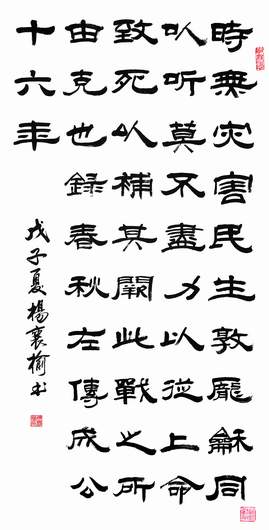 時無灾害民生敦龐龢同
以听莫不盡力以從上命
致死以補其闕此戰之所
由克也錄春秋左傳成公
十六年
戊子夏楊襄榆书